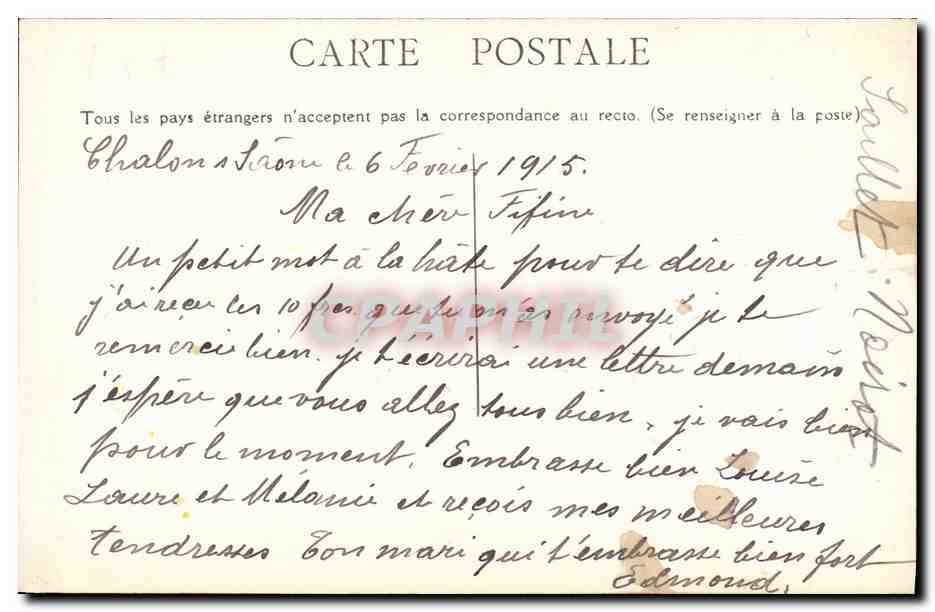 CARTE POSTALE
Tous les pays étrangers n'acceptent pas la correspondance au recto. (Se renseigner à la poste)
Chalon s Saône le 6 Fevrier 1915.
Ma chère Fifine
Un petit mot à la hâte pour te dire que
j'ai recu les 10 frcs que tu m'as envoyé je te
remercie bien. je t'écrirai une lettre demain
j'espère que vous allez tous bien, je vais bien
pour le moment. Embrasse bien Louise
Laure et Mélanie et reçois mes meilleures
tendresses Ton mari qui t'embrasse bien fort
Edmond.
Noirot
CPAPHIL